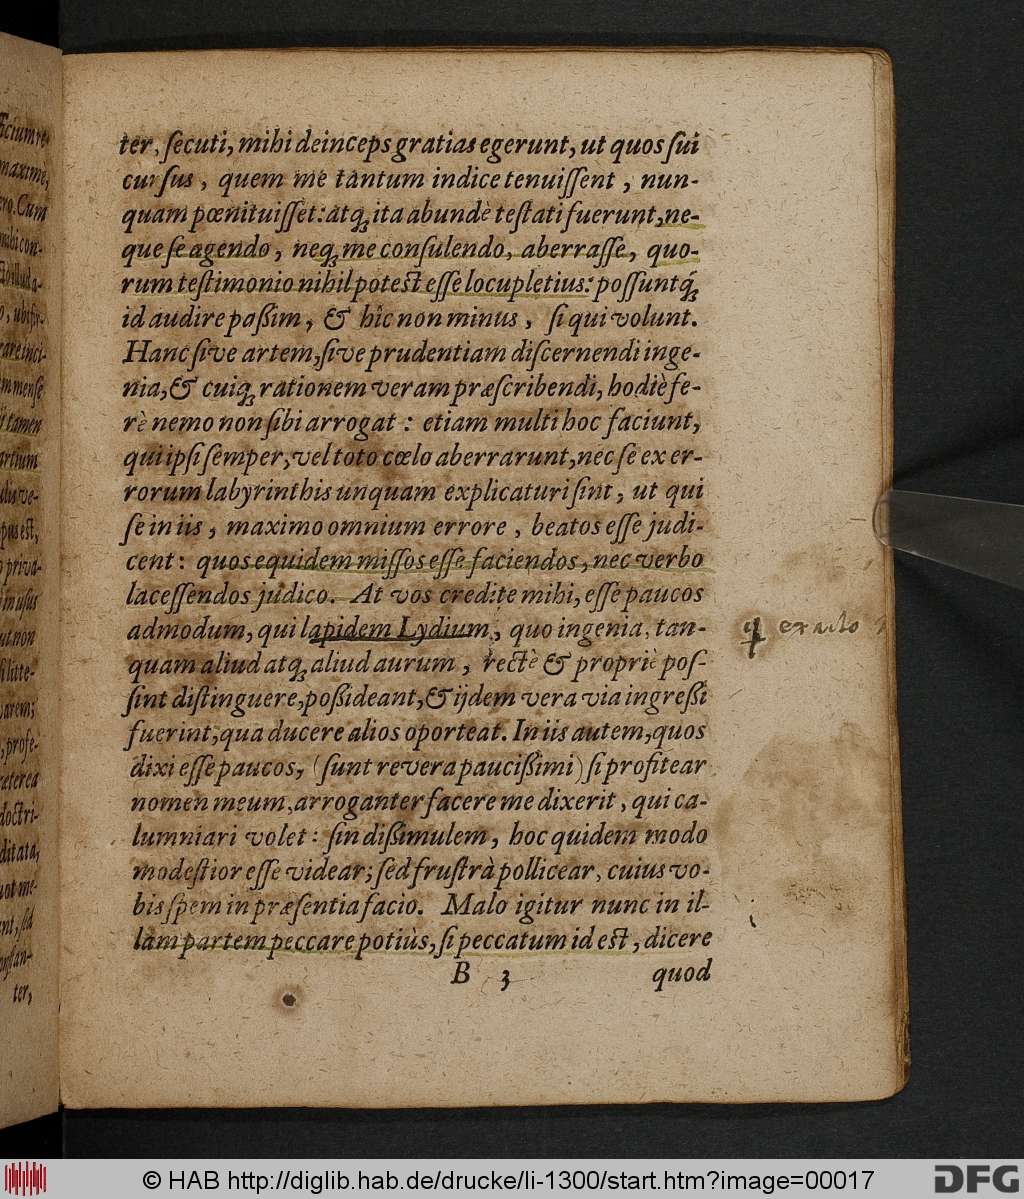 ter, ſecuti, mihi deinceps gratias egerunt, ut quos ſui
curſus, quem me tantum indice tenuiſſent, nun-
quam pœnituiſſet: atq; ita abundè teſtati fuerunt, ne-
que ſe agendo, neq; me conſulendo, aberraſſe, quo-
rum teſtimonio nihil poteſt eſſe locupletius: poſſuntq́;
id audire paßim, & hîc non minus, ſi qui volunt.
Hanc ſive artem, ſive prudentiam diſcernendi inge-
nia, & cuiq; rationem veram præſcribendi, hodiè fe-
rè nemo non ſibi arrogat: etiam multi hoc faciunt,
qui ipſi ſemper, vel toto cœlo aberrarunt, nec ſe ex er-
rorum labyrinthis unquam explicaturi ſint, ut qui
ſe in iis, maximo omnium errore, beatos eſſe judi-
cent: quos equidem miſſos eſſe faciendos, nec verbo
laceſſendos judico. At vos credite mihi, eſſe paucos
admodum, qui lapidem Lydium, quo ingenia, tan-
quam aliud atq; aliud aurum, rectè & propriè poſ-
ſint diſtinguere, poßideant, & ijdem vera via ingreßi
fuerint, qua ducere alios oporteat. In iis autem, quos
dixi eſſe paucos, (ſunt revera paucißimi) ſi profitear
nomen meum, arroganter facere me dixerit, qui ca-
lumniari volet: ſin dißimulem, hoc quidem modo
modeſtior eſſe videar; ſed fruſtrà pollicear, cuius vo-
bis ſpem in præſentia facio. Malo igitur nunc in il-
lam partem peccare potiùs, ſi peccatum id eſt, dicere
B 3 quod
ter,
© HAB http://diglib.hab.de/drucke/li-1300/start.htm?image=00017
DFG